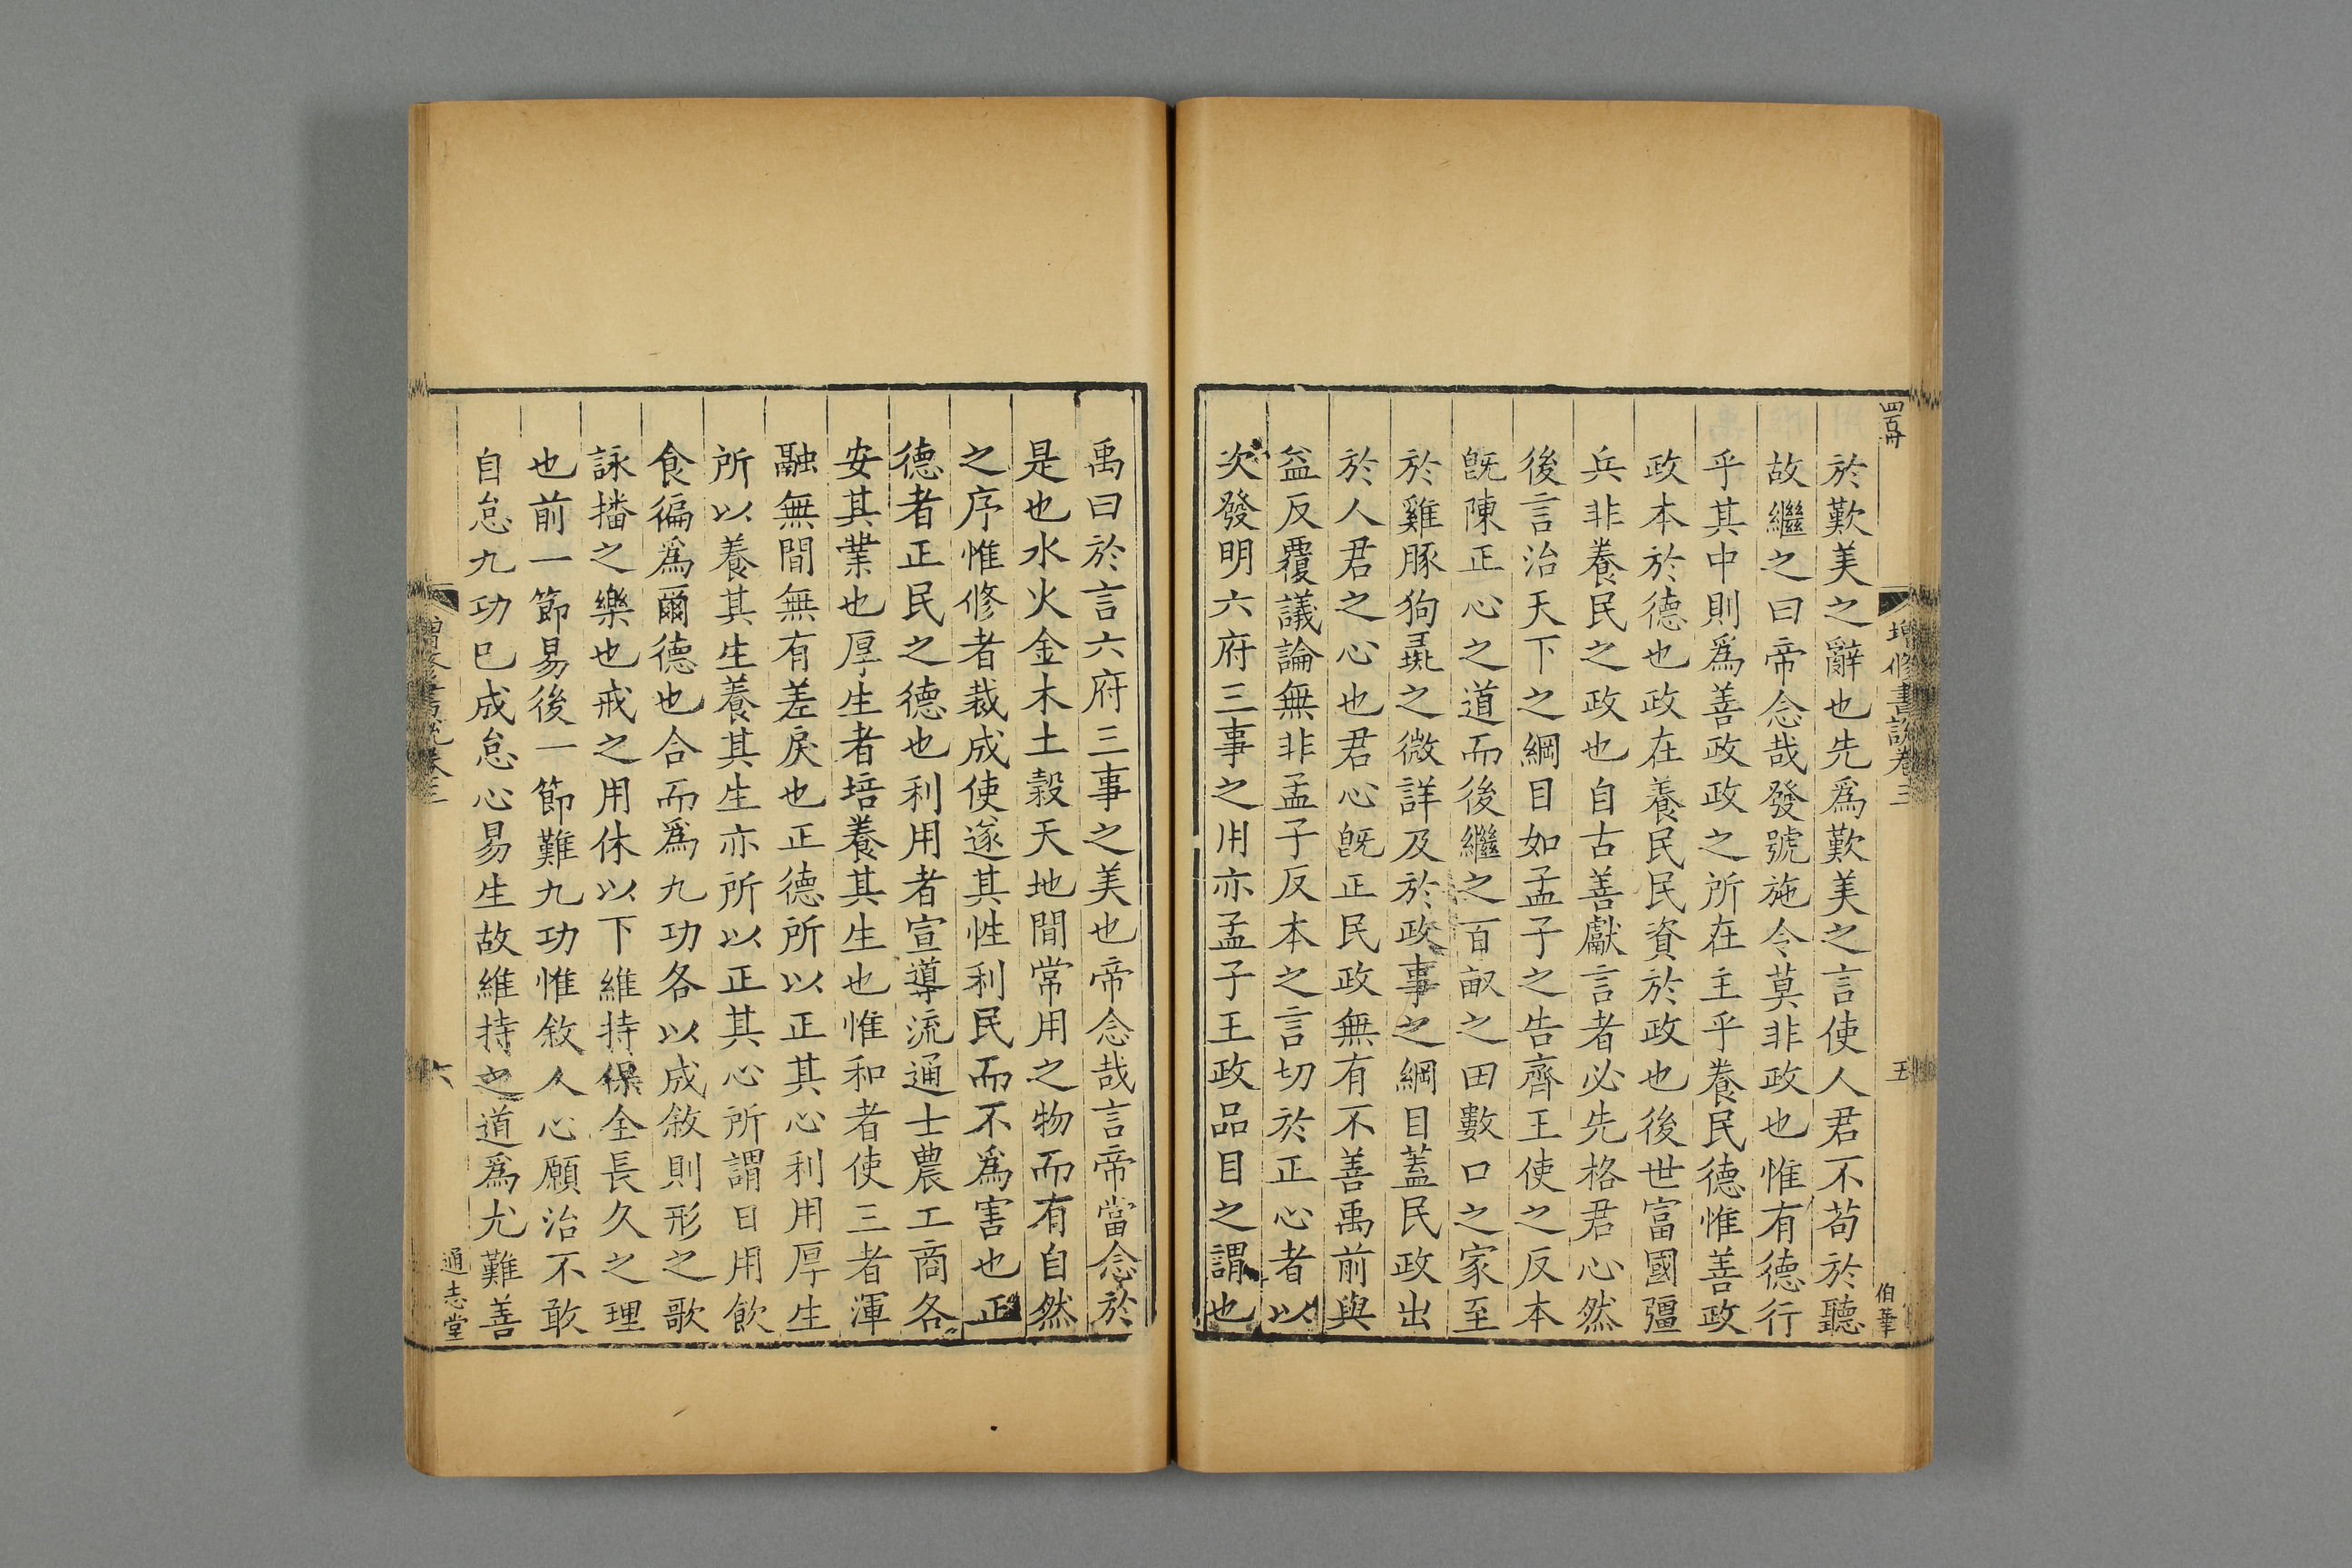 四百卅
增修書說卷三
五
伯華
於歎美之辭也先爲歎美之言使人君不苟於聽
故繼之曰帝念哉發號施令莫非政也惟有德行
乎其中則爲善政政之所在主乎養民德惟善政
政本於德也政在養民民資於政也後世富國彊
兵非養民之政也自古善獻言者必先格君心然
後言治天下之綱目如孟子之告齊王使之反本
旣陳正心之道而後繼之百畝之田數口之家至
於雞豚狗彘之微詳及於政事之綱目蓋民政出
於人君之心也君心旣正民政無有不善禹前與
益反覆議論無非孟子反本之言切於正心者以
次發明六府三事之用亦孟子王政品目之謂也
禹曰於言六府三事之美也帝念哉言帝當念於
是也水火金木土穀天地間常用之物而有自然
之序惟修者裁成使遂其性利民而不爲害也正
德者正民之德也利用者宣導流通士農工商各
安其業也厚生者培養其生也惟和者使三者渾
融無間無有差戾也正德所以正其心利用厚生
所以養其生養其生亦所以正其心所謂日用飮
食徧爲爾德也合而爲九功各以成敘則形之歌
詠播之樂也戒之用休以下維持保全長久之理
也前一節易後一節難九功惟敘人心願治不敢
自怠九功已成怠心易生故維持之道爲尤難善
增修書說卷三
六
通志堂